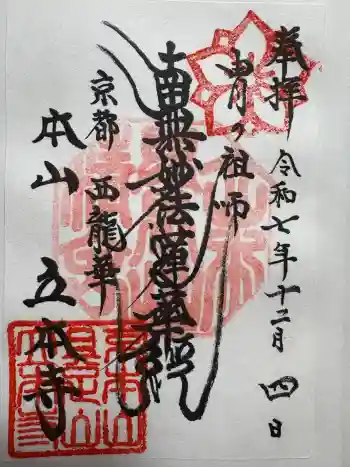 奉拝
令和七年十二月四日
歯の祖師
南無妙法蓮華経
京都 西龍華
本山 立本寺